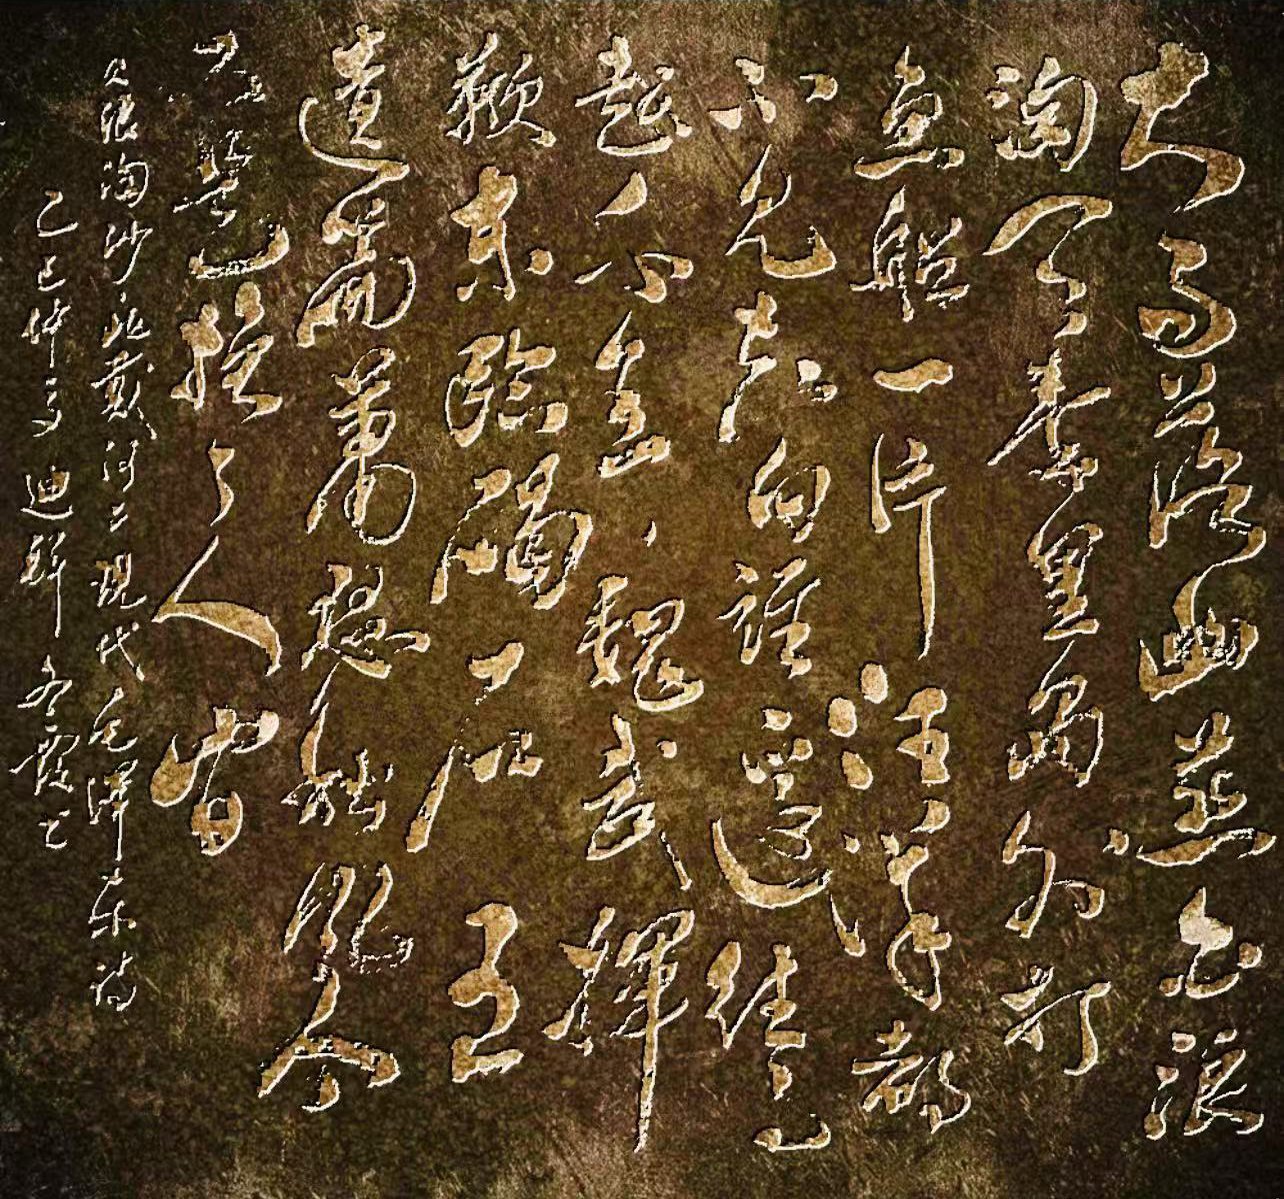 大雨落幽燕白浪
滔天秦皇岛外打
鱼船一片汪洋都
不见知向谁边往事
越千年魏武挥
鞭东临碣石有
遗篇萧瑟秋风今
又是换了人间
浪淘沙·北戴河 现代毛泽东诗
乙巳仲夏 迪辉 书